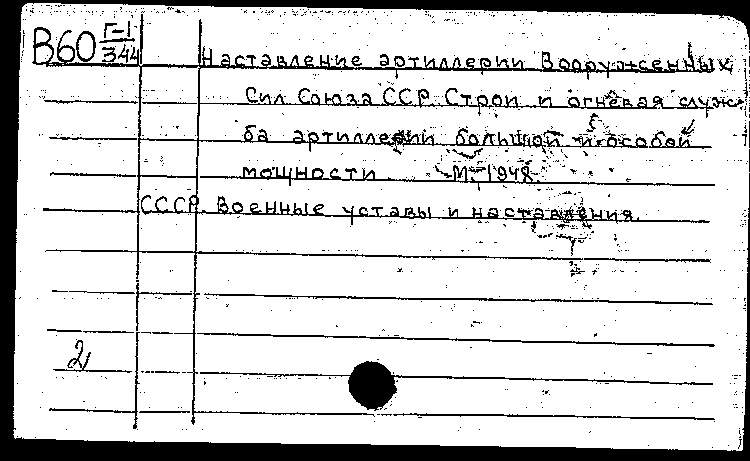 В60 Г-1/344
Наставление артиллерии Вооруженных
Сил Союза ССР. Строй и огневая служ-
ба артиллерии большой и особой
мощности. М.-1948.
СССР. Военные уставы и наставления.
2